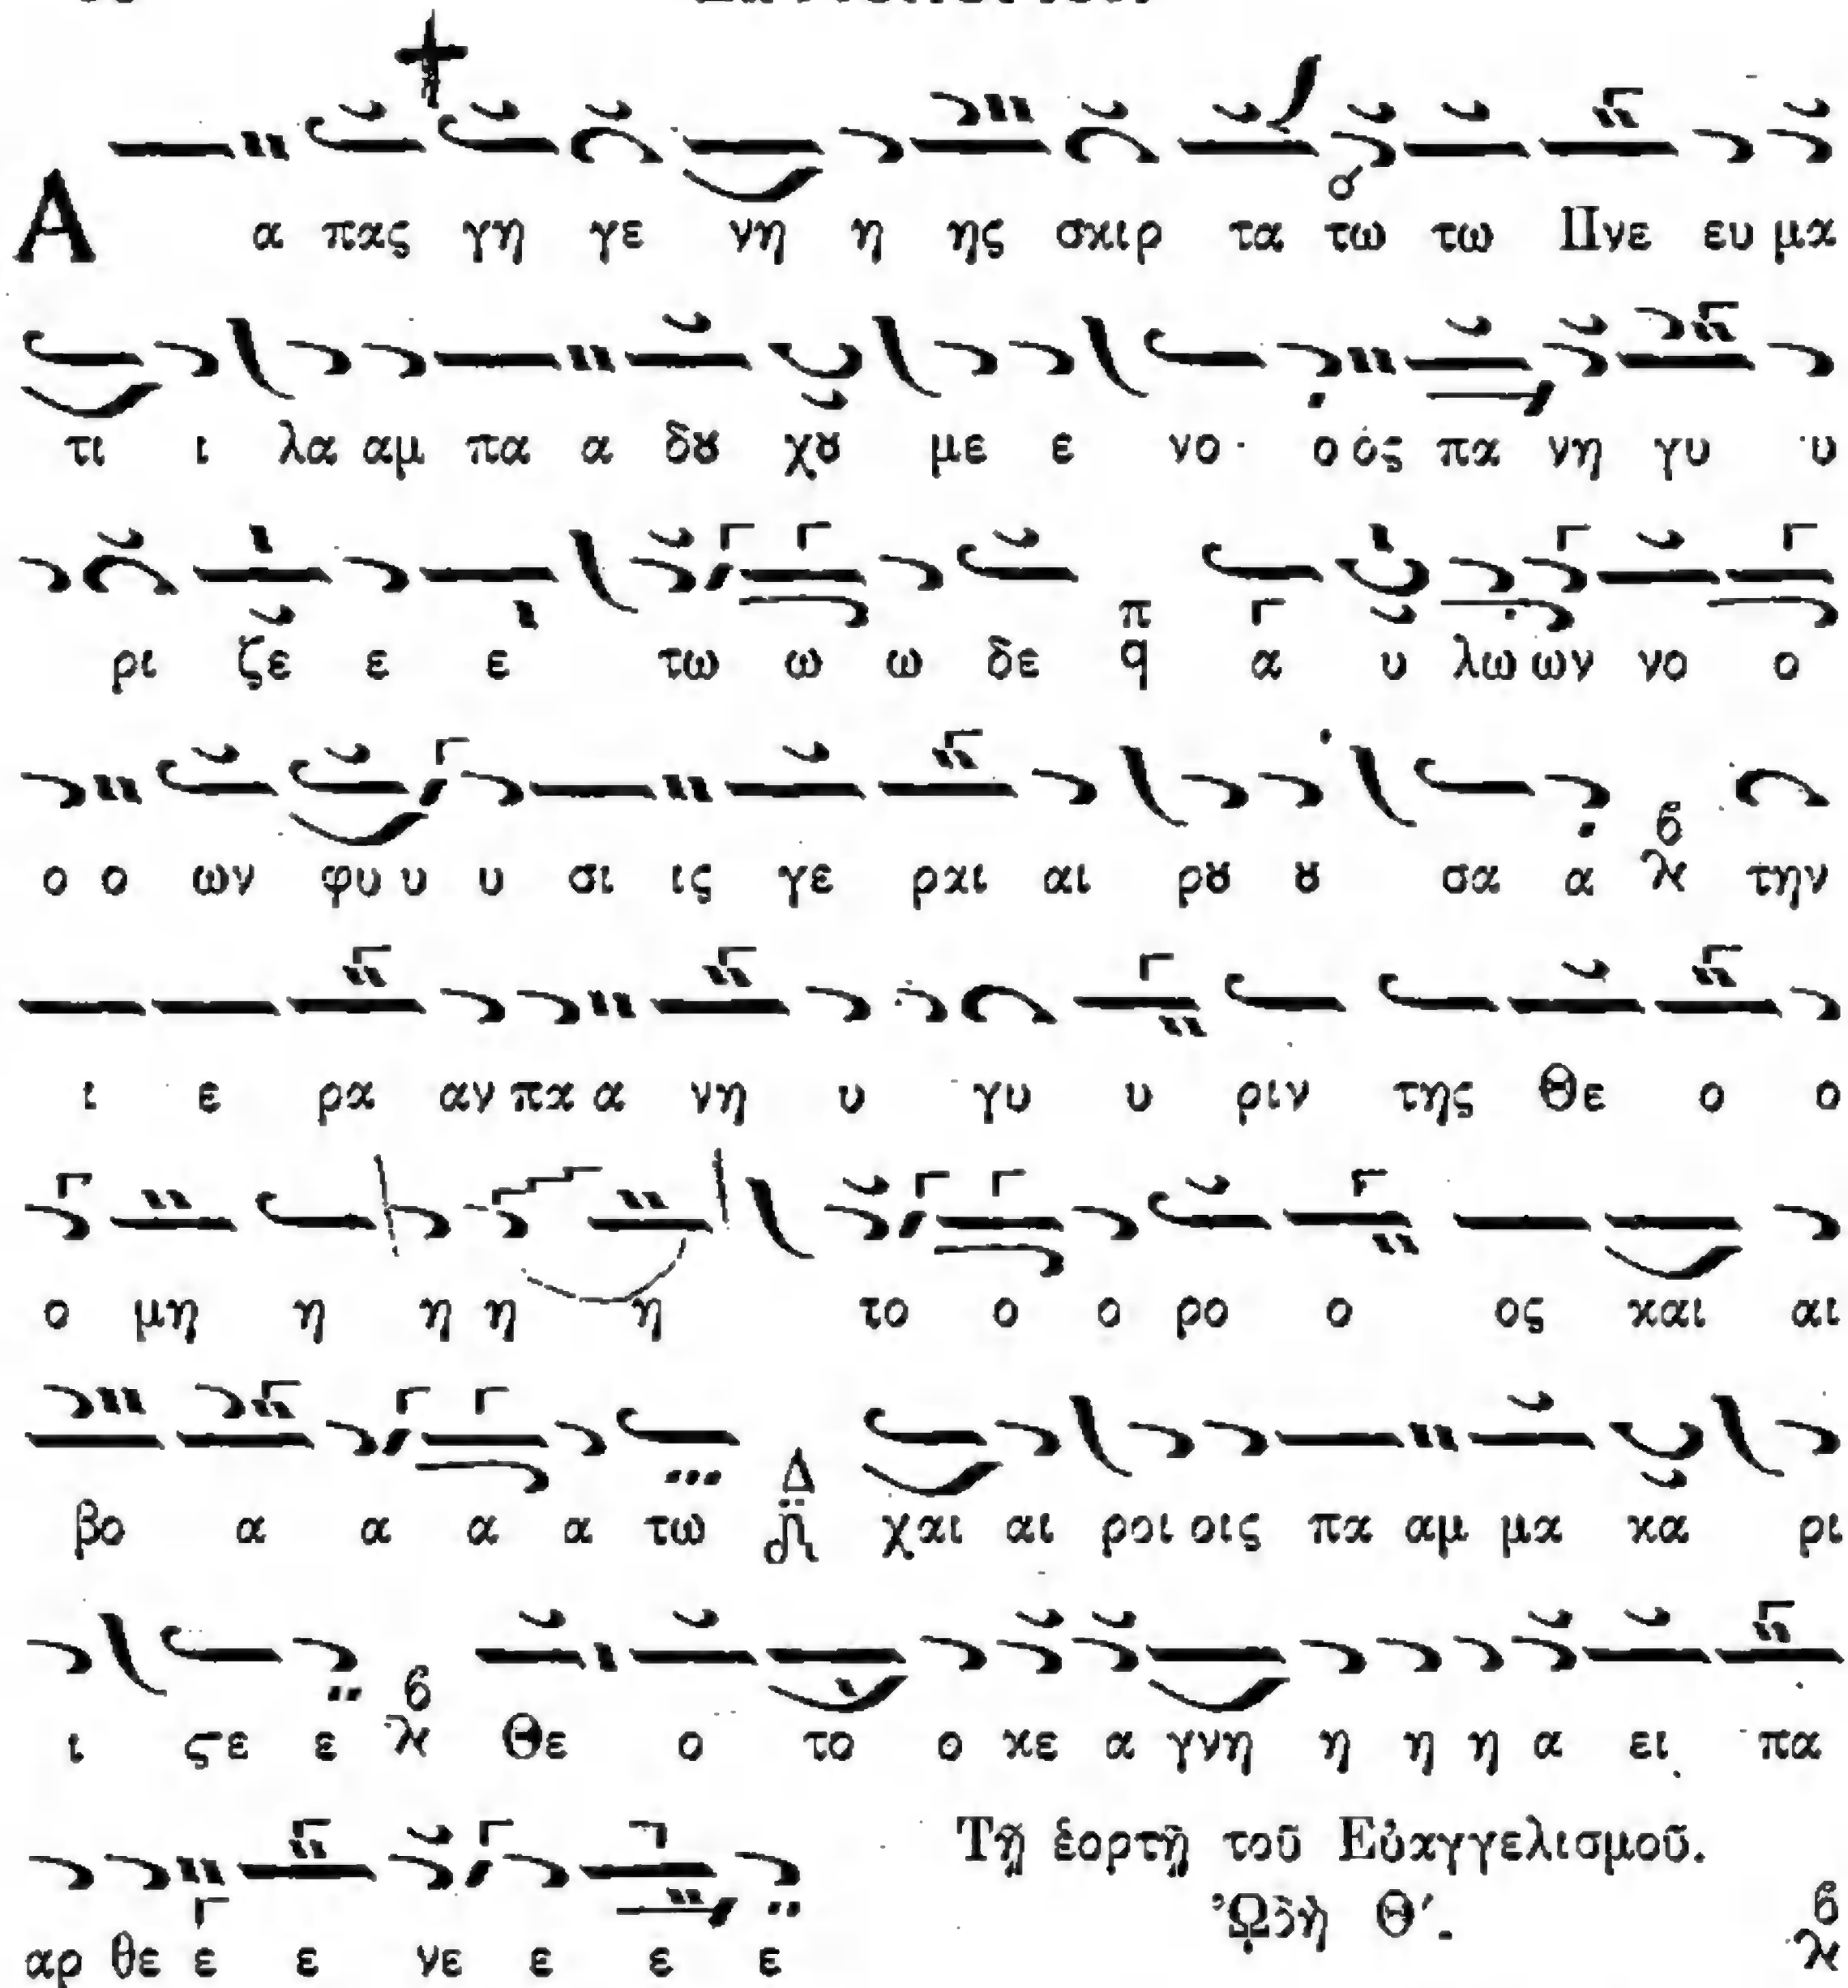 Α α πας γη γε νη η ης σκιρ τα τω τω Πνε ευ μα
τι ι λα αμ πα α δȣ χȣ με ε νο ο ός πα νη γυ υ
ρι ζε ε ε τω ω ω δε π q α υ λω ων νο ο
ο ο ων φυ υ υ σι ις γε ραι αι ρȣ ȣ σα α την
ι ε ρα αν πα α νη υ γυ υ ριν της Θε ο ο
ο μη η η η η το ο ο ρο ο ος και αι
βο α α α α τω Δ χαι αι ροι οις πα αμ μα κα ρι
ι ςε ε Θε ο το ο κε α γνη η η η α ει πα
αρ θε ε ε νε ε ε ε
Τῇ ἑορτῇ τοῦ Εὐαγγελισμοῦ.
ᾨδὴ Θʹ.